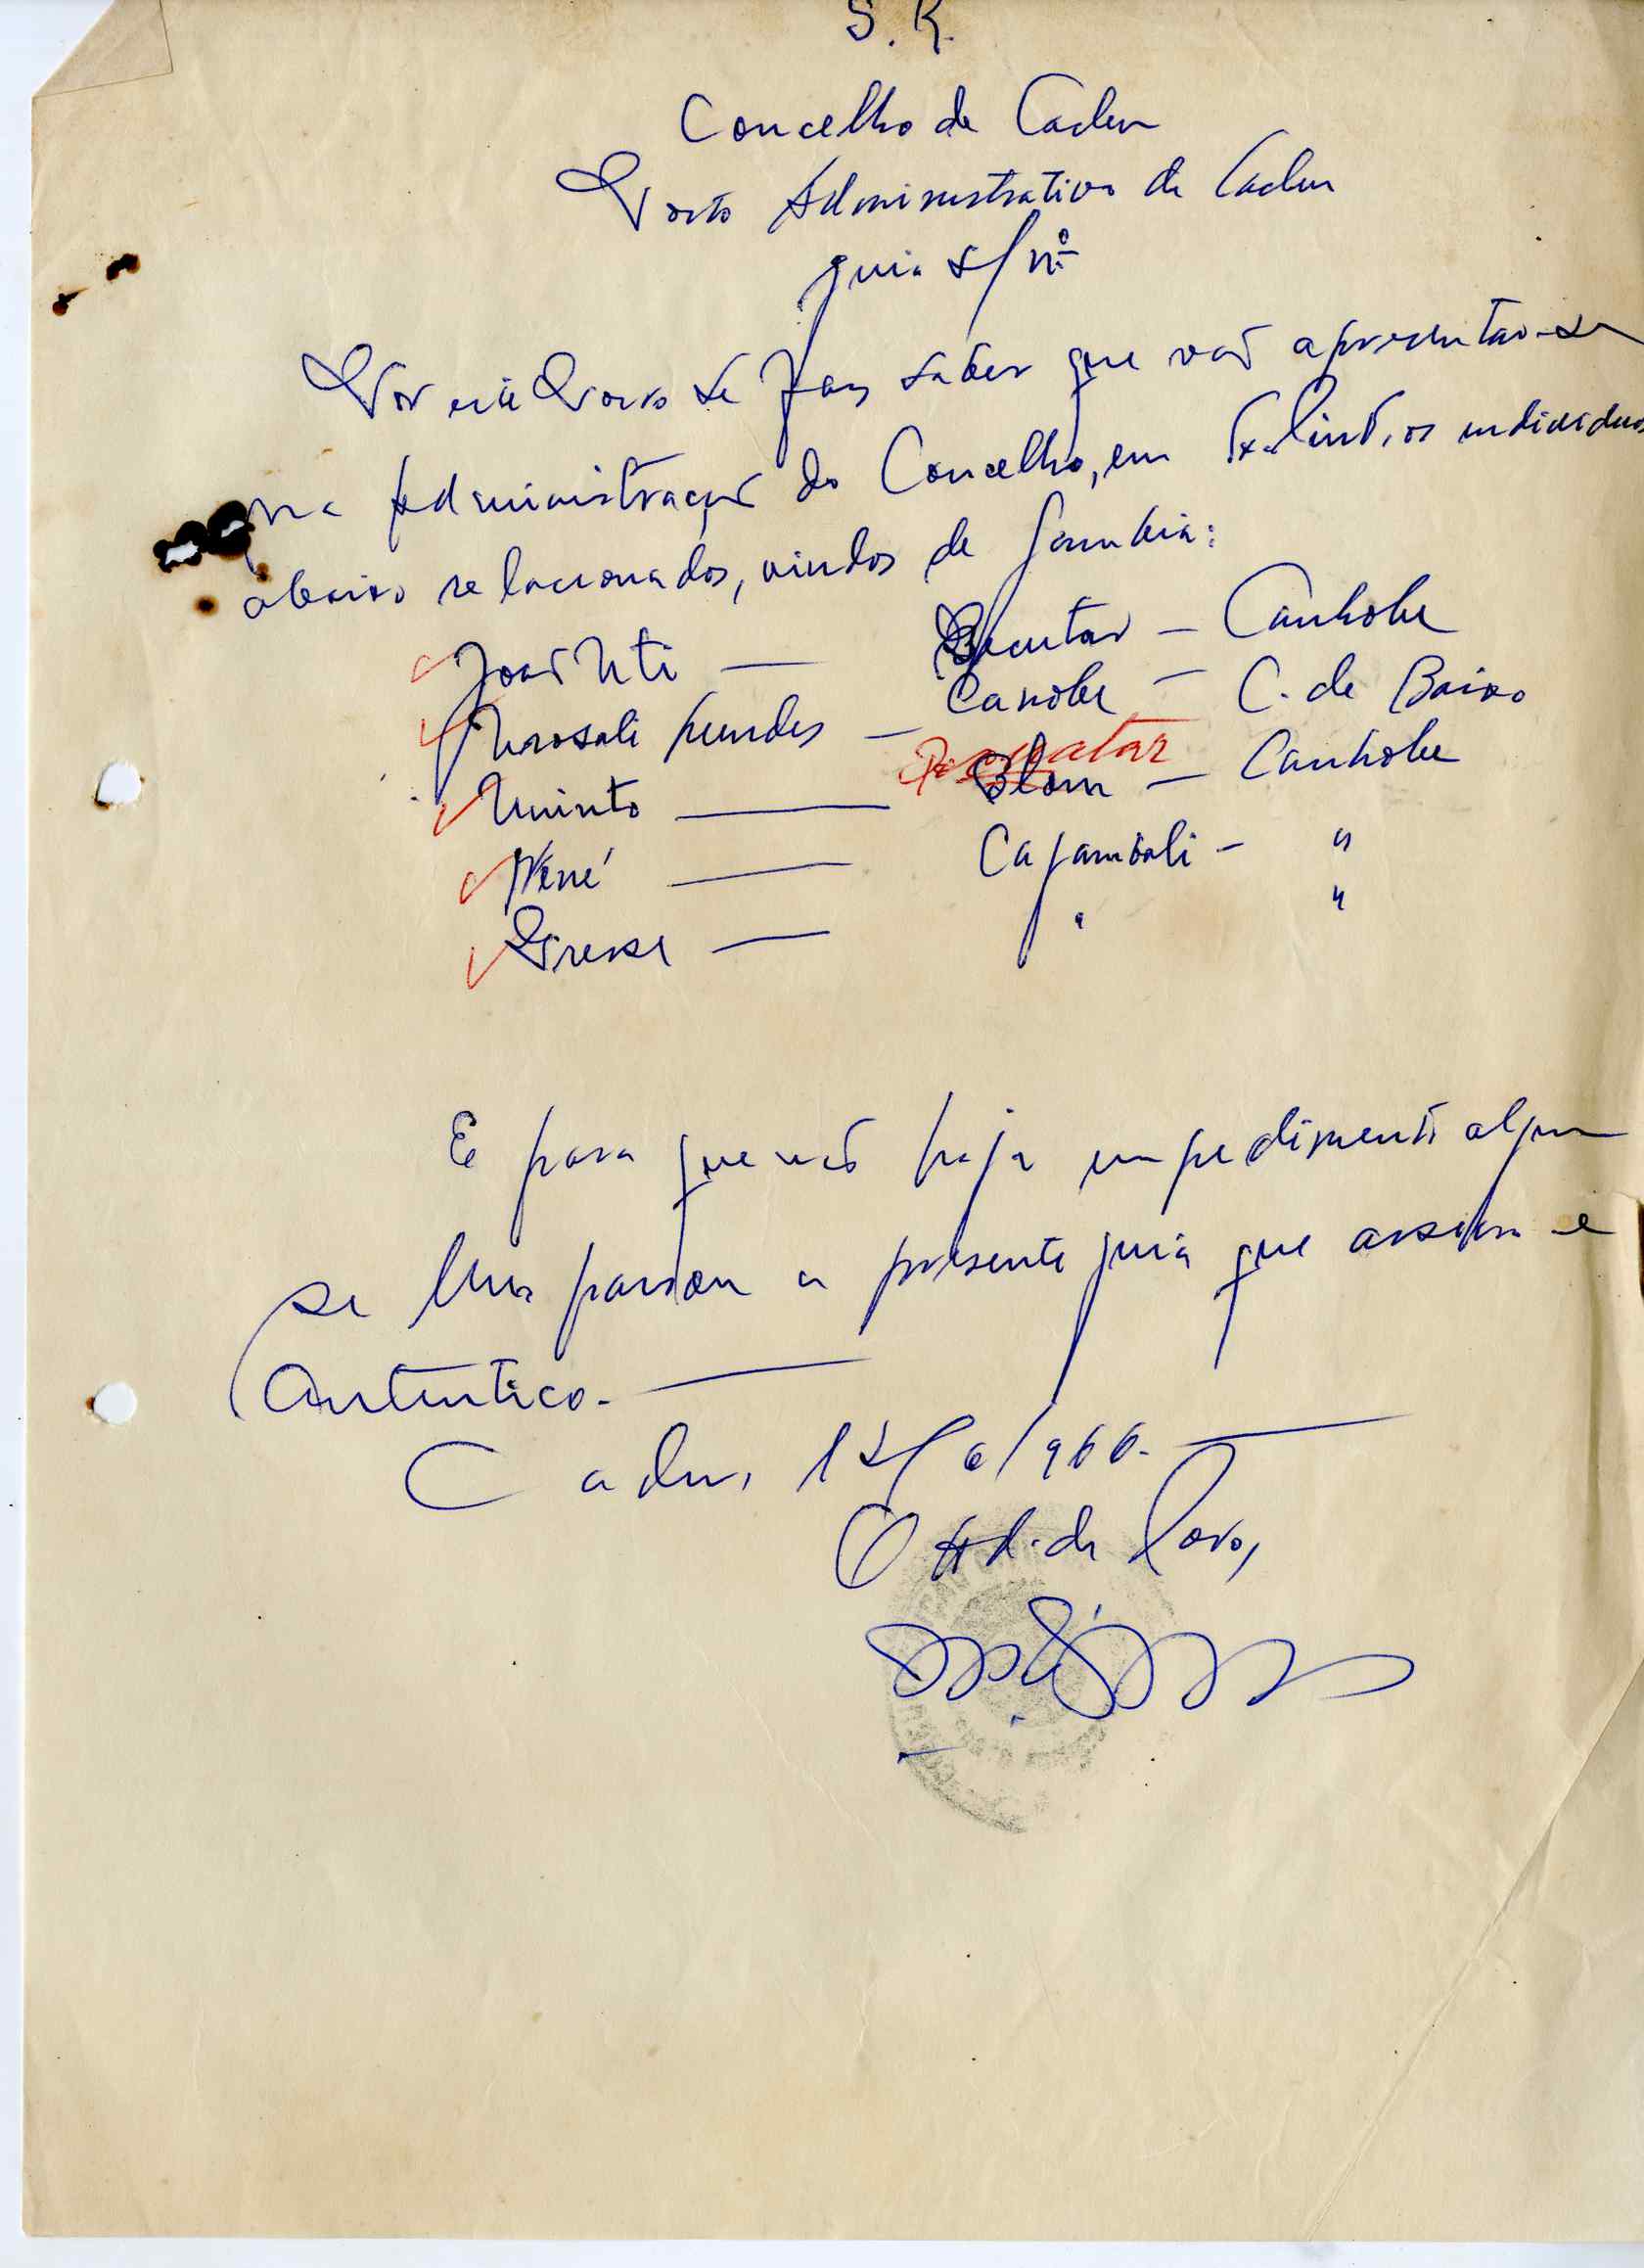 S. R.
Concelho de Cacheu
Posto Administrativo de Cacheu
guia s/nº
Por este Posto se faz saber que vão apresentar-se
na Administração do Concelho, em Te. Pinto, os individuos
abaixo relacionados, vindos de Gambia:
João Uti — Becutar — Canhobe
Mendes — Canobe — C. de Baixo
Pecuatar
Uininto — Blom — Canhobe
René — Cajambali — "
" "
E para que não haja impedimento algum
se lhes passou a presente guia que assino e
autentico. —
Cacheu, 15/6/966. —
O Ad. de Posto,